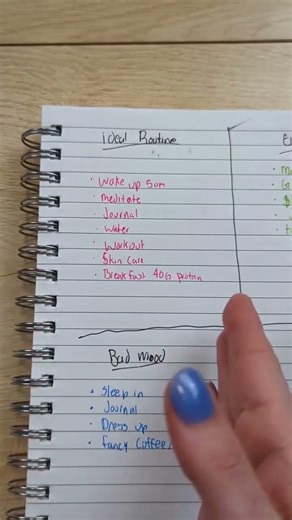 ideal Routine
• Wake up 5am
• meditate
• Journal
• Water
• Workout
• Skin Care
• Breakfast 40G protein
Bad mood
• Sleep in
• Journal
• Dress up
• fancy Coffee